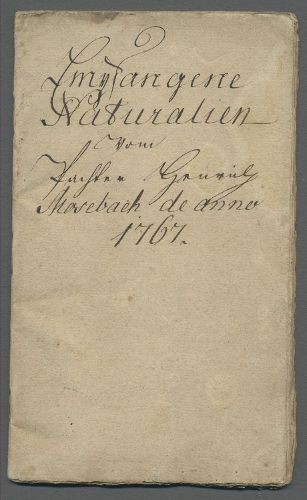 Empfangene
Naturalien
vom
Pachter Henrich
Mosebach de anno
1767.